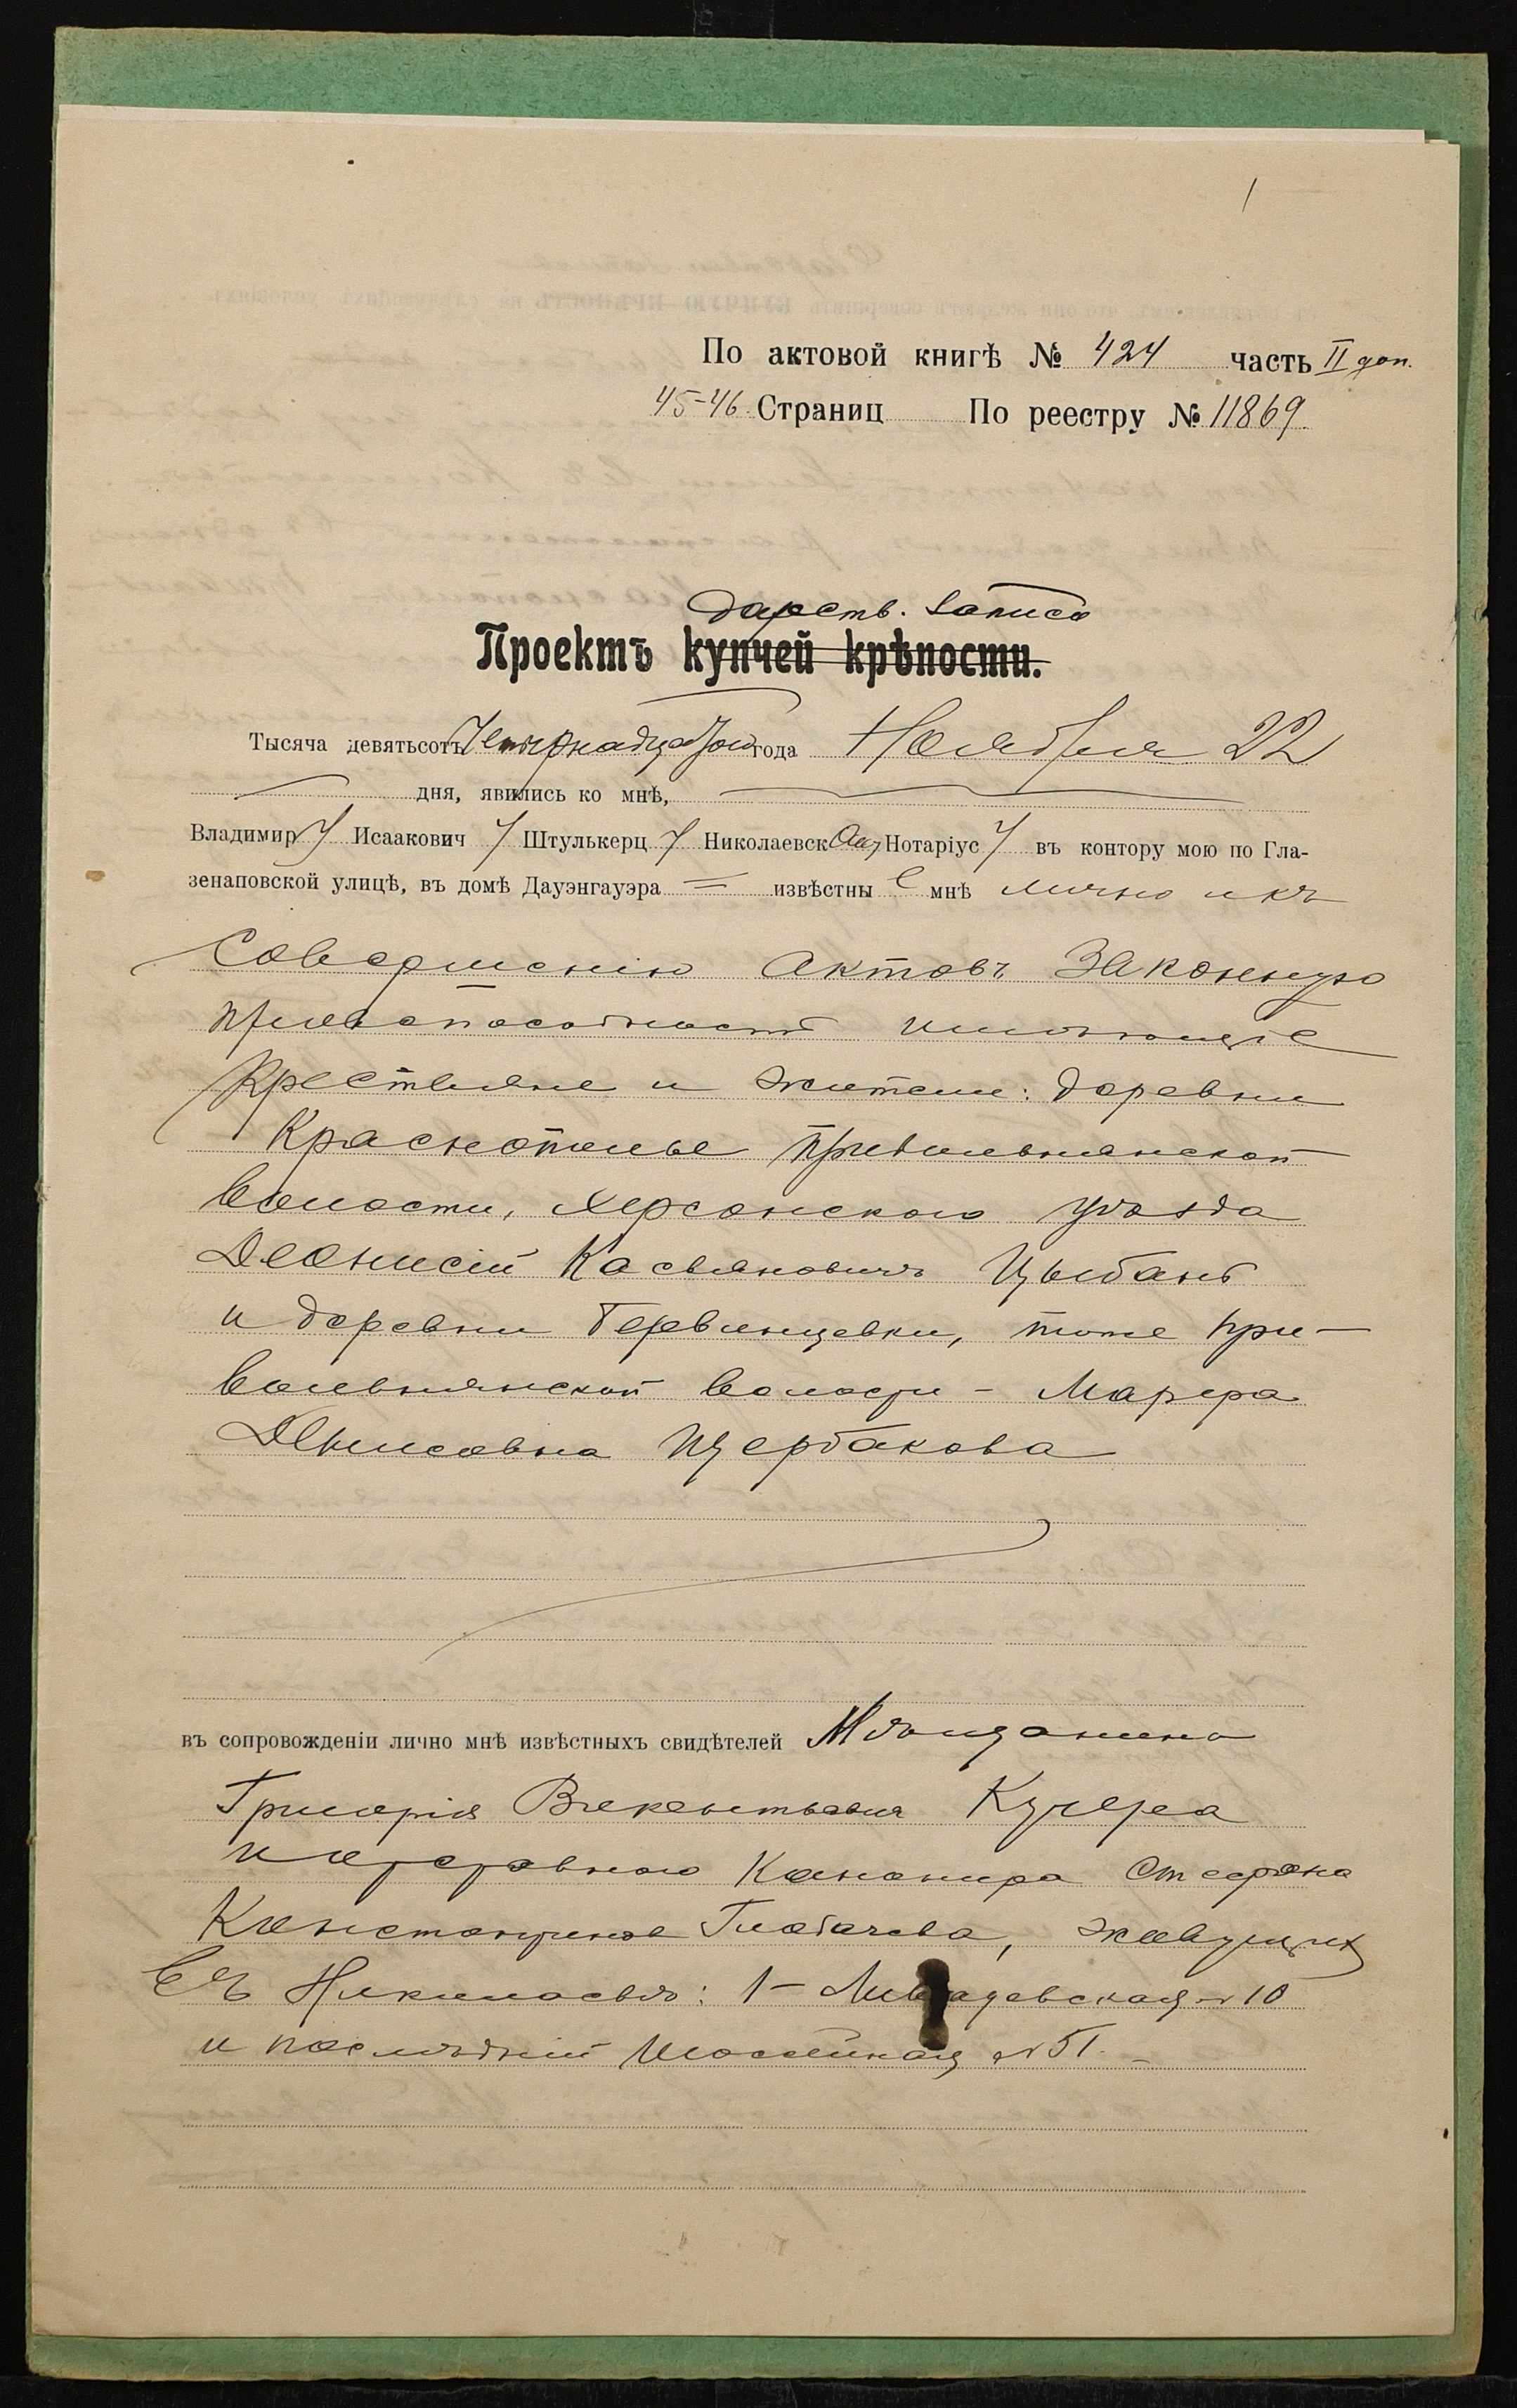 По актовой книгѣ № 424 часть II доп.
45-46 Страниц По реестру № 11869
Дарств. записи
Проектъ купчей крѣпости.
Тысяча девятьсотъ Четырнадцатого года Ноября 22
дня, явились ко мнѣ,
Владимиру Исаакович у Штулькерц у Николаевск ому Нотаріус у въ контору мою по Гла-
зенаповской улицѣ, въ домѣ Дауэнгауэра извѣстны е мнѣ лично и къ
совершенію актовъ законную
правоспособность имѣющіе
Крестьяне и жители: деревни
Краснополье Привольнянской
волости, Херсонскаго уѣзда
Деонисій Касьяновичъ Цыбань
и деревни , тоже При-
вольнянской волости - Марфа
Денисовна Щербакова
въ сопровожденіи лично мнѣ извѣстныхъ свидѣтелей Мѣщанина
Григорія Викентьевича Кучера
и Канонира Стефана
Константинова Глобачева, живущихъ
въ Николаевѣ: 1- № 10
и послѣдній Шоссейная № 51.